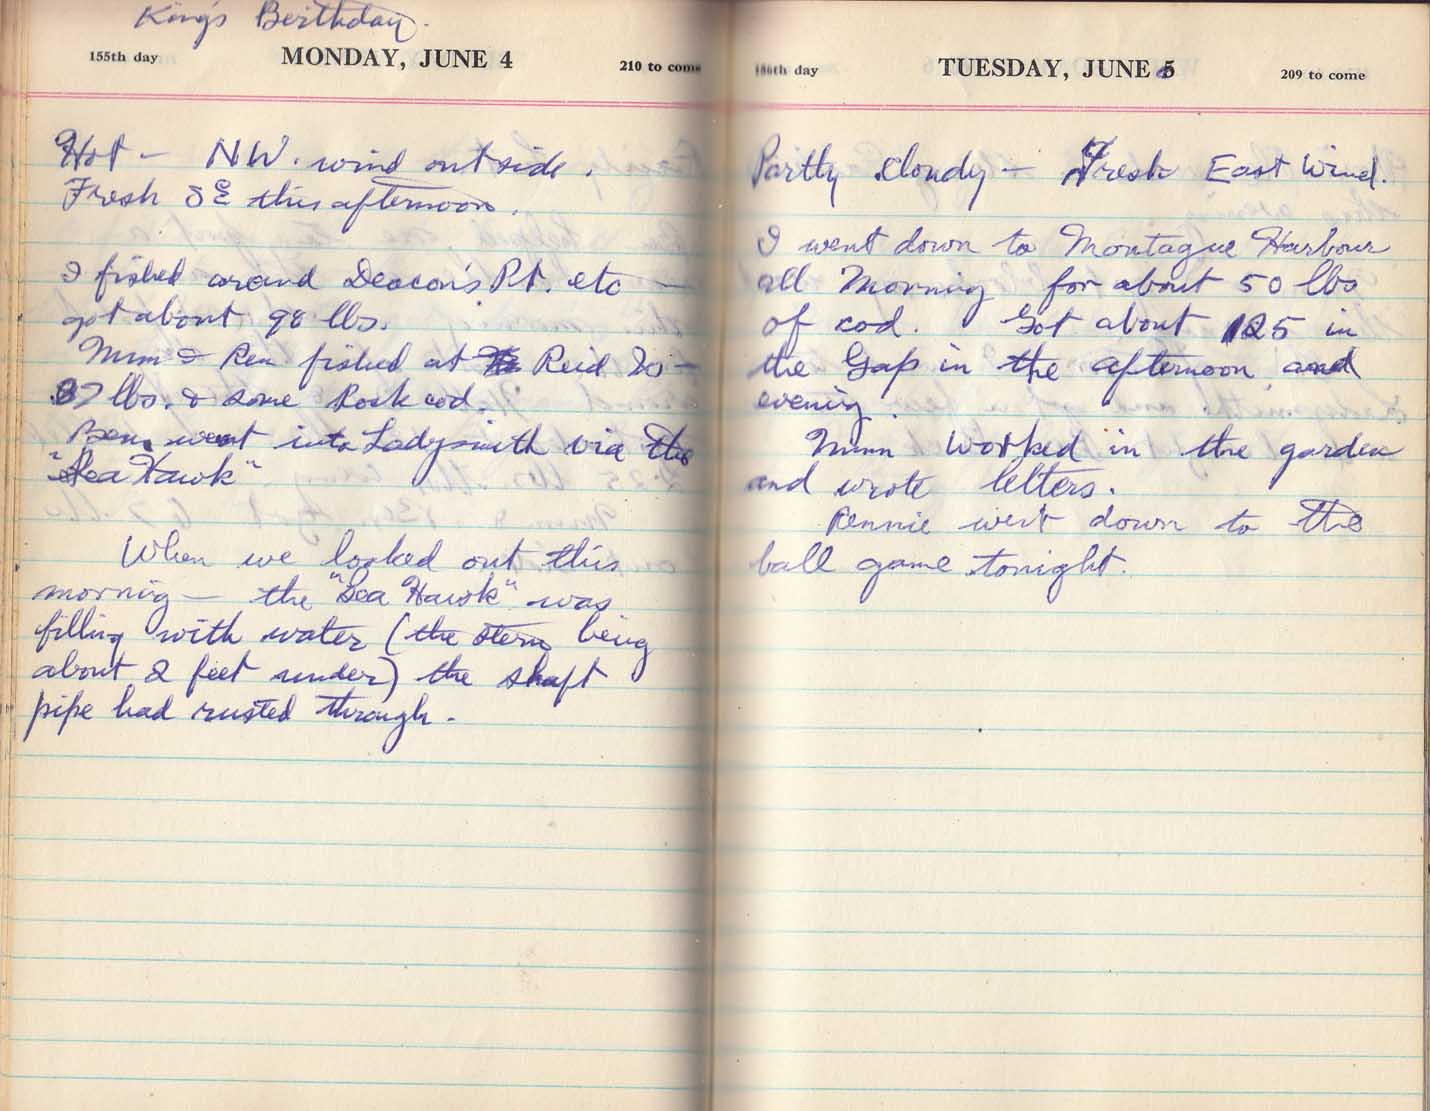 King's Birthday.
155th day MONDAY, JUNE 4 210 to come
Hot — NW. wind outside.
Fresh SE this afternoon.
I fished around Deacon's Pt. etc —
got about 98 lbs.
Mim & Ren fished at Reid Is —
87 lbs. & some Rock cod.
Ben went into Ladysmith via the
"Sea Hawk"
When we looked out this
morning — the "Sea Hawk" was
filling with water (the stern being
about 2 feet under) the shaft
pipe had rusted through.
156th day TUESDAY, JUNE 5 209 to come
Partly Cloudy — Fresh East Wind.
I went down to Montague Harbour
all Morning for about 50 lbs
of cod. Got about 125 in
the Gap in the afternoon and
evening.
Mim worked in the garden
and wrote letters.
Rennie went down to the
ball game tonight.